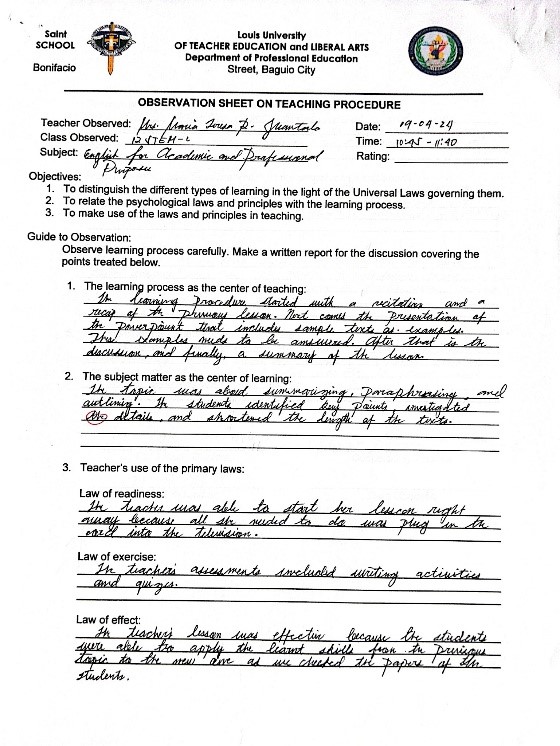 Saint Louis University
SCHOOL OF TEACHER EDUCATION and LIBERAL ARTS
Department of Professional Education
Bonifacio Street, Baguio City
OBSERVATION SHEET ON TEACHING PROCEDURE
Teacher Observed: Mrs. Maria Teresa P. Date: 19-04-24
Class Observed: 12 STEM-L Time: 10:45 - 11:40
Subject: English for Academic and Professional Rating:
Purposes
Objectives:
1. To distinguish the different types of learning in the light of the Universal Laws governing them.
2. To relate the psychological laws and principles with the learning process.
3. To make use of the laws and principles in teaching.
Guide to Observation:
Observe learning process carefully. Make a written report for the discussion covering the
points treated below.
1. The learning process as the center of teaching:
The learning procedure started with a recitation and a
recap of the previous lesson. Next comes the presentation of
the powerpoint that includes sample texts as examples.
The samples needs to be answered. After that is the
discussion, and finally, a summary of the lesson.
2. The subject matter as the center of learning:
The topic was about summarizing, paraphrasing, and
outlining. The students identified key points, investigated
details, and shortened the length of the texts.
3. Teacher's use of the primary laws:
Law of readiness:
The teacher was able to start her lesson right
away because all she needed to do was plug in the
cord into the television.
Law of exercise:
The teacher's assessments included writing activities
and quizes.
Law of effect:
The teacher's lesson was effective because the students
were able to apply the learnt skills from the previous
topic to the new one as we checked the papers of the
students.